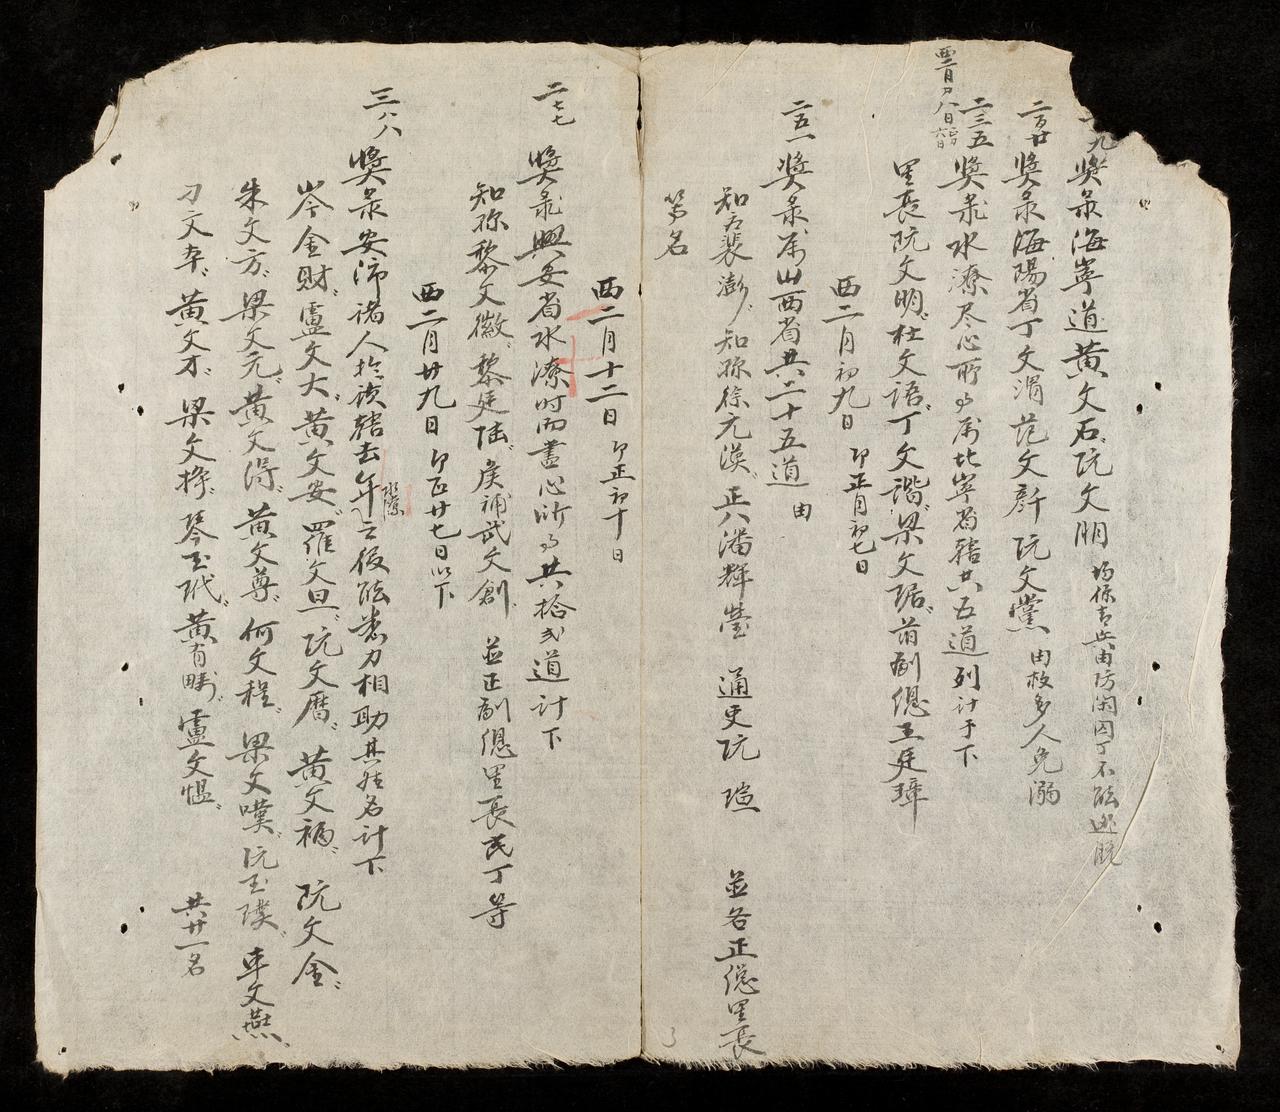 九 奬彔海寧道黃文石阮文明 均係吉兵由防閑囚丁不能逃脫
二百廿 奬彔海陽省丁文渭范文訢阮文黨 由救多人免溺
西二月初八日
二三五 奬彔水潦尽心所事属北寧省轄共五道列計于下
里長阮文明杜文語丁文諧梁文琚前副總王廷璋
西二月初九日 卽正月初七日
二五一 奬彔属山西省共二十五道 由
知縣裴澎知縣徐元漠正八潘輝瑩 通吏阮瑄 並各正總里長
等名
西二月十二日 卽正初十日
二七七 奬彔興安省水潦时雨盡心所事共拾弍道計下
知縣黎文徽黎廷陆候補武文創 並正副總里長民丁等
西二月廿九日 卽正廿七日以下
三八八 奬彔安沛諸人於该轄去年水潦之後能悉力相助其姓名計下
岑金財盧文大黃文安羅文旦阮文曆黃文福阮文金
朱文方梁文元黃文得黃文尊何文程梁文嘆阮玉璞車文燕
刁文本黃文才梁文挣琴玉玳黃有疇盧文愠 共廿一名
3